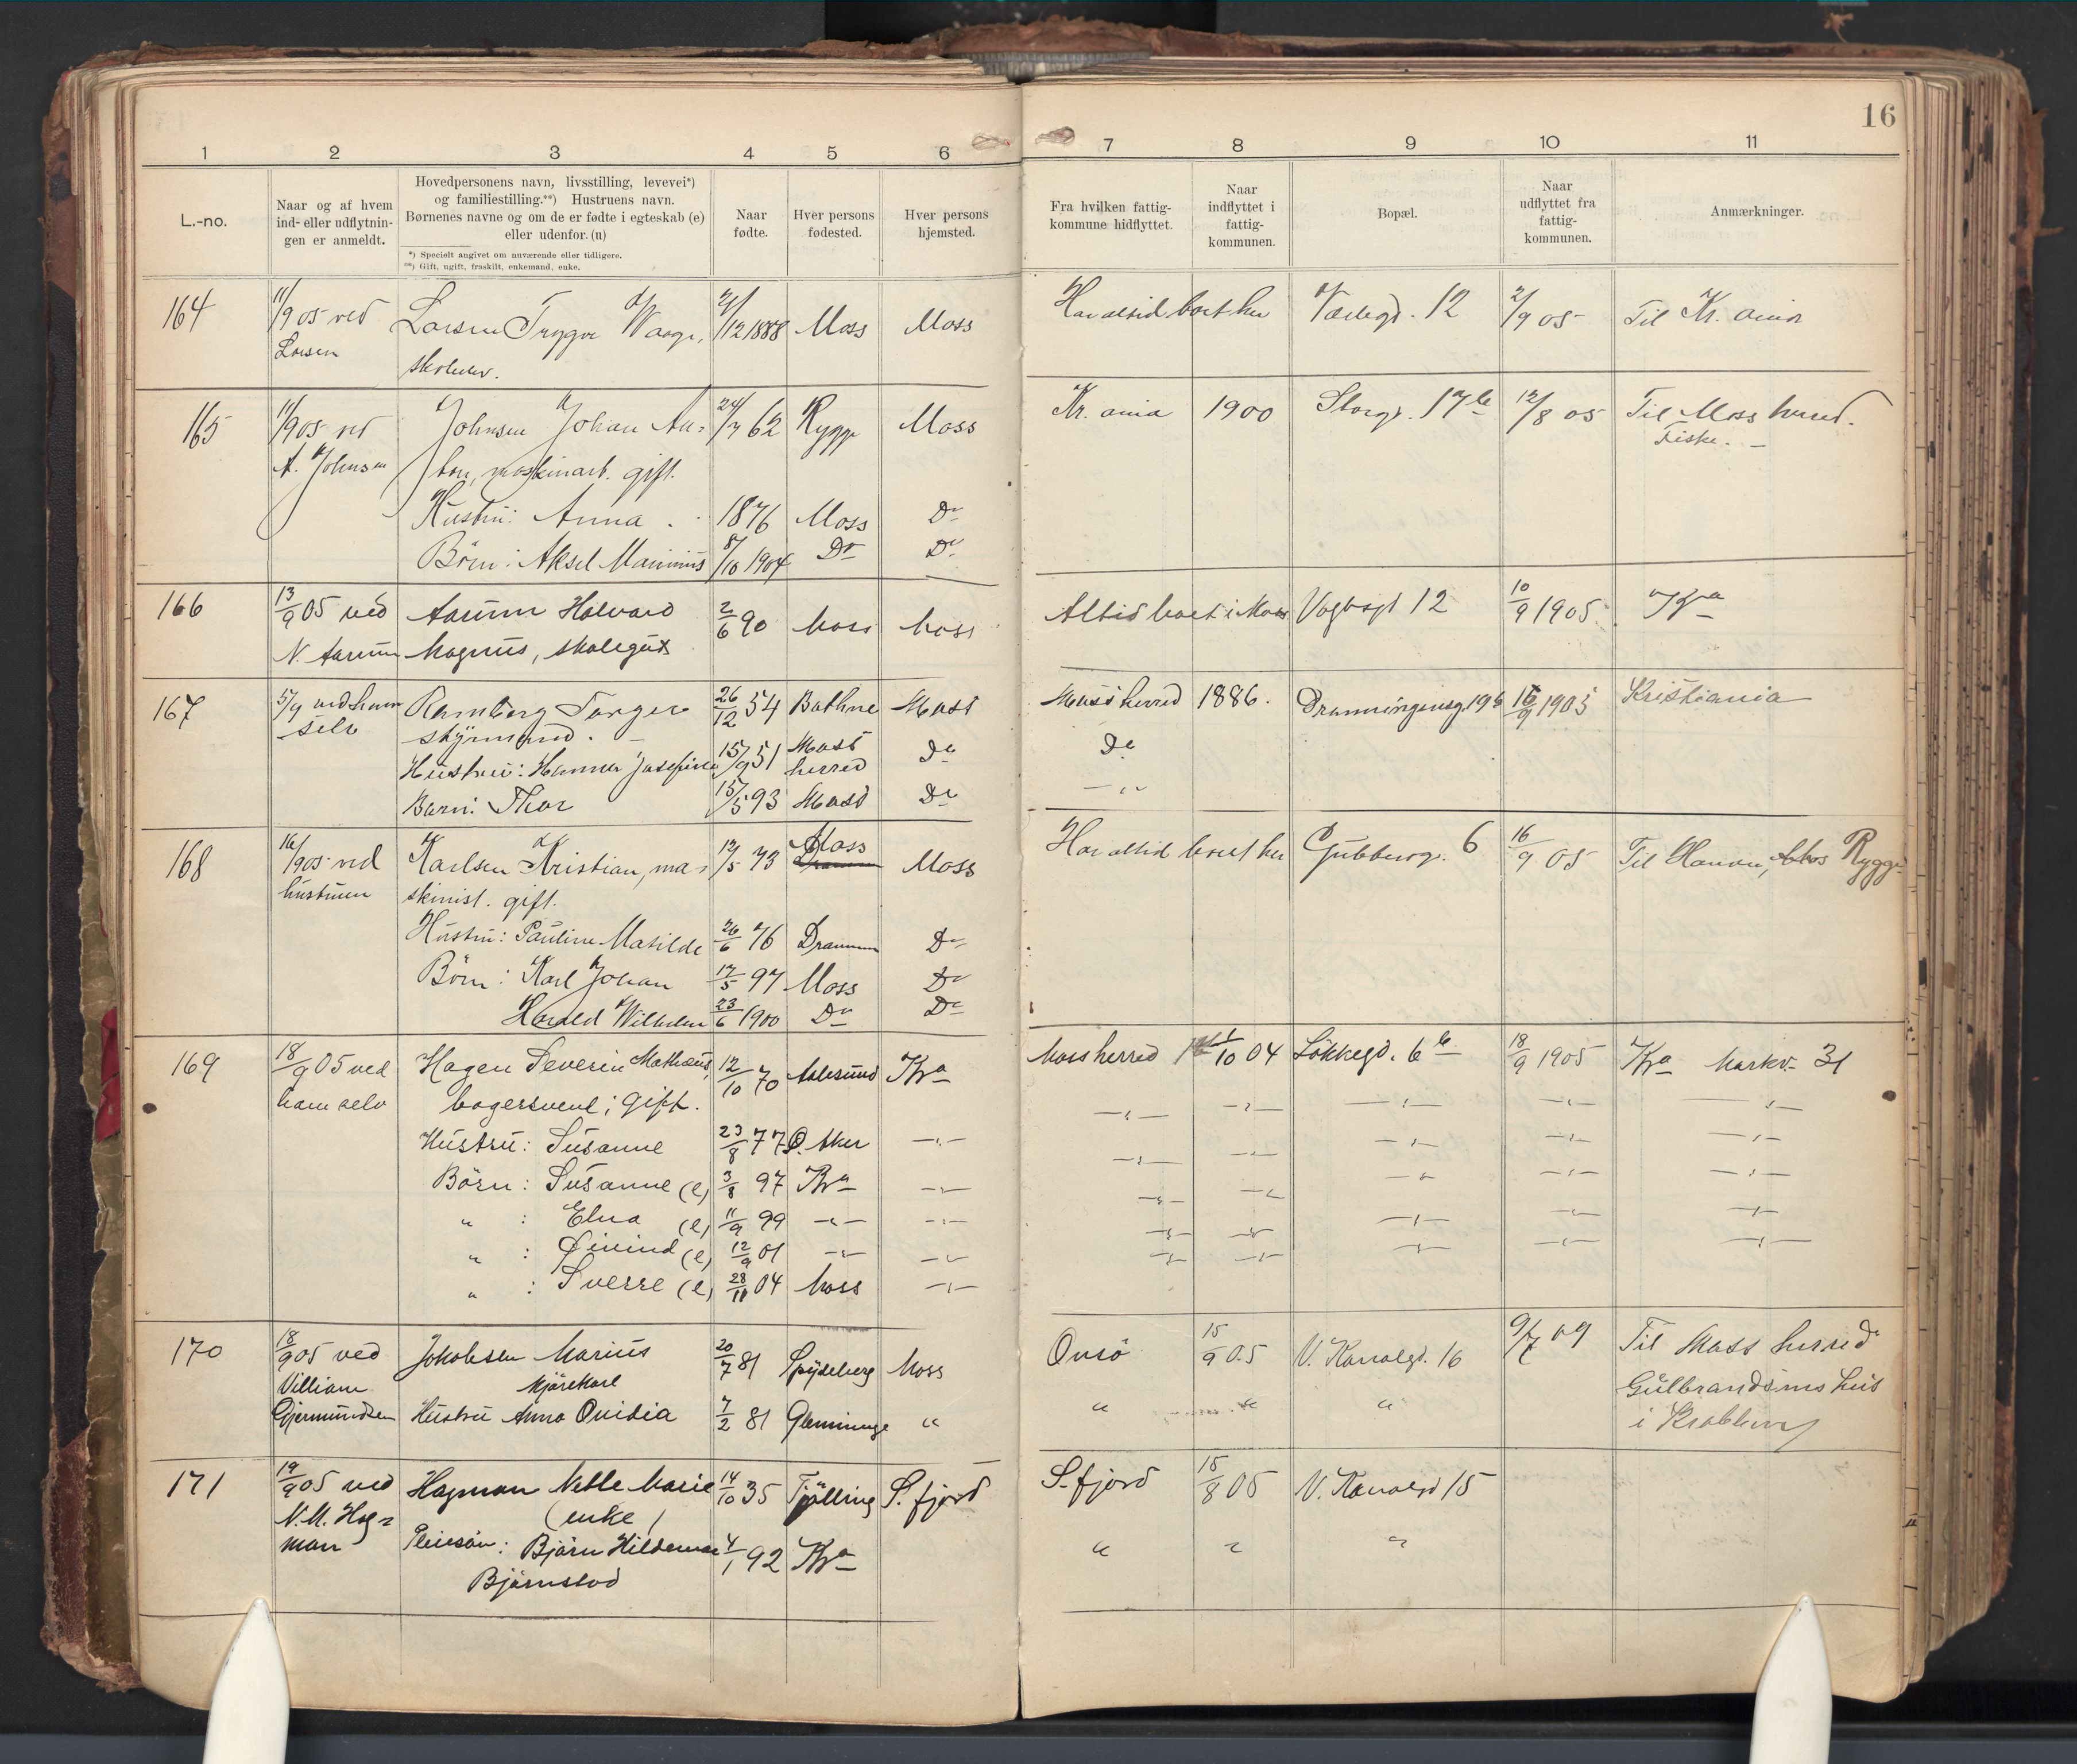 16
1 2 3 4 5 6 7 8 9 10 11
L.-no.
Naar og af hvem
ind- eller udflytnin-
gen er anmeldt.
Hovedpersonens navn, livsstilling, levevei*)
og familiestilling.**) Hustruens navn.
Børnenes navne og om de er fødte i egteskab (e)
eller udenfor. (u)
*) Specielt angivet om nuværende eller tidligere.
**) Gift, ugift, fraskilt, enkemand, enke.
Naar
fødte.
Hver persons
fødested.
Hver persons
hjemsted.
Fra hvilken fattig-
kommune hidflyttet.
Naar
indflyttet i
fattig-
kommunen.
Bopæl.
Naar
udflyttet fra
fattig-
kommunen.
Anmærkninger.
164 11/9 05 ved Larsen Trygve Waage, 21/12 1888 Moss Moss Har altid boet her 12 2/9 05 Til Kr.ania
Larsen skoleelev.
165 11/9 05 ved Johnsen Johan An- 24/7 62 Rygge Moss Kr.ania 1900 Storgt. 17b 12/8 05 Til Moss herred.
A. Johnsen ton, maskinarb. gift. Fiske.
Hustru: Anna 1876 Moss Do
Börn: Aksel Marinius 8/10 1904 Do Do
166 13/9 05 ved Aarum Halvard 2/6 90 Moss Moss Altid boet i Moss Vogtsgt 12 10/9 1905 Kra
N. Aarum Magnus, skolegut
167 5/9 ved ham Ramberg Torger 26/12 54 Moss Mossherred 1886. Dronningensg. 19b 16/9 1905 Kristiania
selv
Hustru: Hanna Josefine 15/9 51 Moss herred Do Do
Barn: Thor 15/5 93 Moss Do — " —
168 16/9 05 ved Karlsen Kristian, ma- 12/5 73 Moss Moss Har altid boet her Gudberg. 6 16/9 05 Til Rygge
hustruen skinist. gift.
Hustru: Pauline Matilde 26/6 76 Drammen Do
Börn: Karl Johan 17/5 97 Moss Do
Harald Wilhelm 23/6 1900 Do Do
169 18/9 05 ved Hagen Severin Mathæus, 12/10 70 Aalesund Kra Moss herred 1/10 04 Løkkegd. 6b 18/9 1905 Kra Markv. 31
ham selv bagersvend; gift. — " — — " — — " — — " — — " —
Hustru: Susanne 23/8 77 Ø. Aker — " — — " — — " — — " — — " — — " —
Börn: Susanne (e) 3/8 97 Kra — " — — " — — " — — " — — " — — " —
" : Elna (e) 11/9 99 — " — — " — — " — — " — — " — — " — — " —
" : Øivind (e) 12/9 01 — " — — " — — " — — " — — " — — " — — " —
" : Sverre (e) 28/11 04 Moss — " —
170 18/9 05 ved Jakobsen Marius 20/7 81 Spydeberg Moss Onsö 15/9 05 V. Kanalgt. 16 9/7 09 Til Moss herred
Villiam kjørekarl Gulbrandsens hus
Gjermundsen Hustru Anna Ovidia 7/2 81 Glemminge " " " " i Krabben
171 19/9 05 ved Hagman Nelle Marie 14/10 35 Tjølling S.fjord S.fjord 15/8 05 V. Kanalgd 15
N.M. Hag- (enke)
man Pleiesøn: Bjørn Hildemar 4/1 92 Kra " " "
Bjørnstad